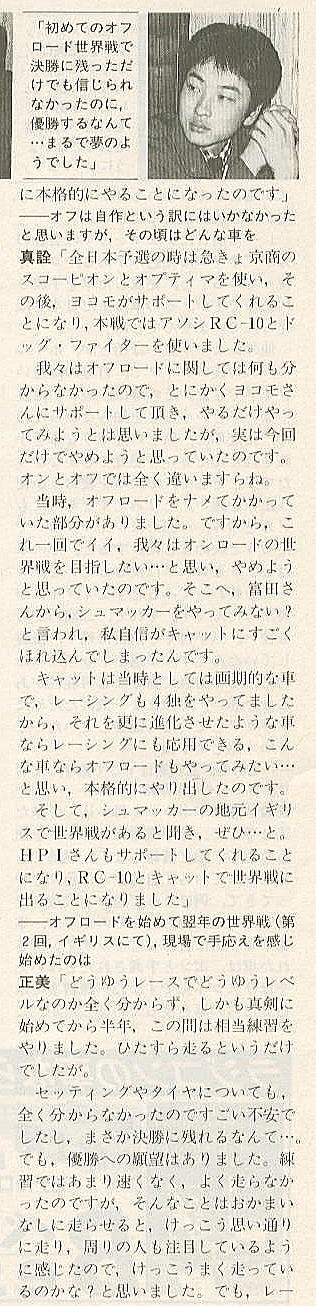 「初めてのオフ
ロード世界戦で
決勝に残っただ
けでも信じられ
なかったのに，
優勝するなんて
…まるで夢のよ
うでした」
に本格的にやることになったのです」
――オフは自作という訳にはいかなかった
と思いますが，その頃はどんな車を
真詮「全日本予選の時は急きょ京商の
スコーピオンとオプティマを使い，そ
の後，ヨコモがサポートしてくれるこ
とになり，本戦ではアソシRC-10とド
ッグ・ファイターを使いました。
　我々はオフロードに関しては何も分
からなかったので，とにかくヨコモさ
んにサポートして頂き，やるだけやっ
てみようとは思いましたが，実は今回
だけでやめようと思っていたのです。
オンとオフでは全く違いますらね。
　当時，オフロードをナメてかかって
いた部分がありました。ですから，こ
れ一回でイイ，我々はオンロードの世
界戦を目指したい…と思い，やめよう
と思っていたのです。そこへ，富田さ
んから，シュマッカーをやってみない？
と言われ，私自信がキャットにすごく
ほれ込んでしまったんです。
　キャットは当時としては画期的な車
で，レーシングも4独をやってました
から，それを更に進化させたような車
ならレーシングにも応用できる，こん
な車ならオフロードもやってみたい…
と思い，本格的にやり出したのです。
　そして，シュマッカーの地元イギリ
スで世界戦があると聞き，ぜひ…と。
HPIさんもサポートしてくれること
になり，RC-10とキャットで世界戦に
出ることになりました」
――オフロードを始めて翌年の世界戦（第
2回，イギリスにて），現場で手応えを感じ
始めたのは
正美「どうゆうレースでどうゆうレベ
ルなのか全く分からず，しかも真剣に
始めてから半年，この間は相当練習を
やりました。ひたすら走るというだけ
でしたが。
　セッティングやタイヤについても，
全く分からなかったのですごい不安で
したし，まさか決勝に残れるなんて…。
でも，優勝への願望はありました。練
習ではあまり速くなく，よく走らなか
ったのですが，そんなことはおかまい
なしに走らせると，けっこう思い通り
に走り，周りの人も注目しているよう
に感じたので，けっこううまく走ってい
るのかな？と思いました。でも，レー